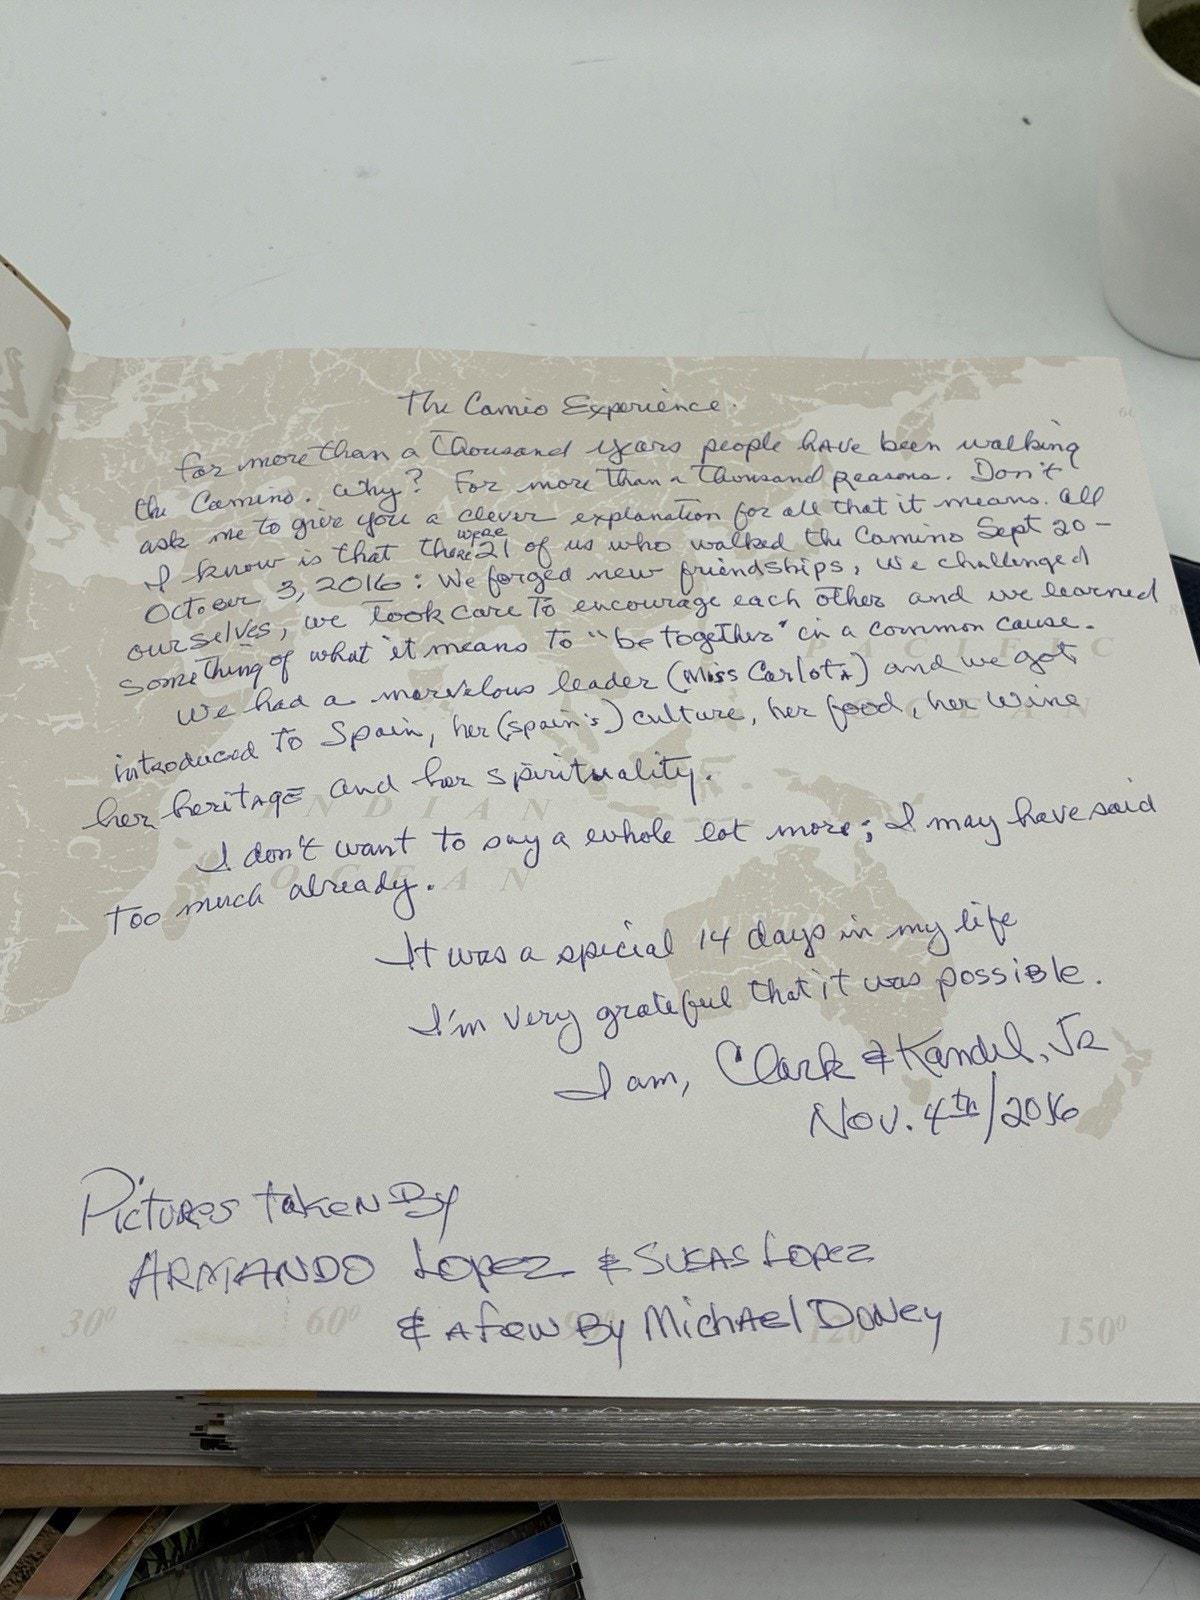 The Camio Experience.
For more than a thousand years people have been walking
the Camino. Why? For more than a thousand reasons. Don't
ask me to give you a clever explanation for all that it means. All
I know is that there were 21 of us who walked the Camino Sept 20 -
October 3, 2016: We forged new friendships, we challenged
ourselves, we took care to encourage each other and we learned
something of what it means to "be together" in a common cause.
We had a marvelous leader (Miss Carlota) and we got
introduced to Spain, her (Spain's) culture, her food, her wine
her heritage and her spirituality.
I don't want to say a whole lot more; I may have said
too much already.
It was a special 14 days in my life
I'm very grateful that it was possible.
I am, Clark & Kandel, Jr
Nov. 4th/2016
Pictures taken By
ARMANDO Lopez & SUSAS LOPEZ
& A few By Michael Doney
PACIFIC
OCEAN
INDIAN
OCEAN
AFRICA
AUSTR
30°
60°
120
150°